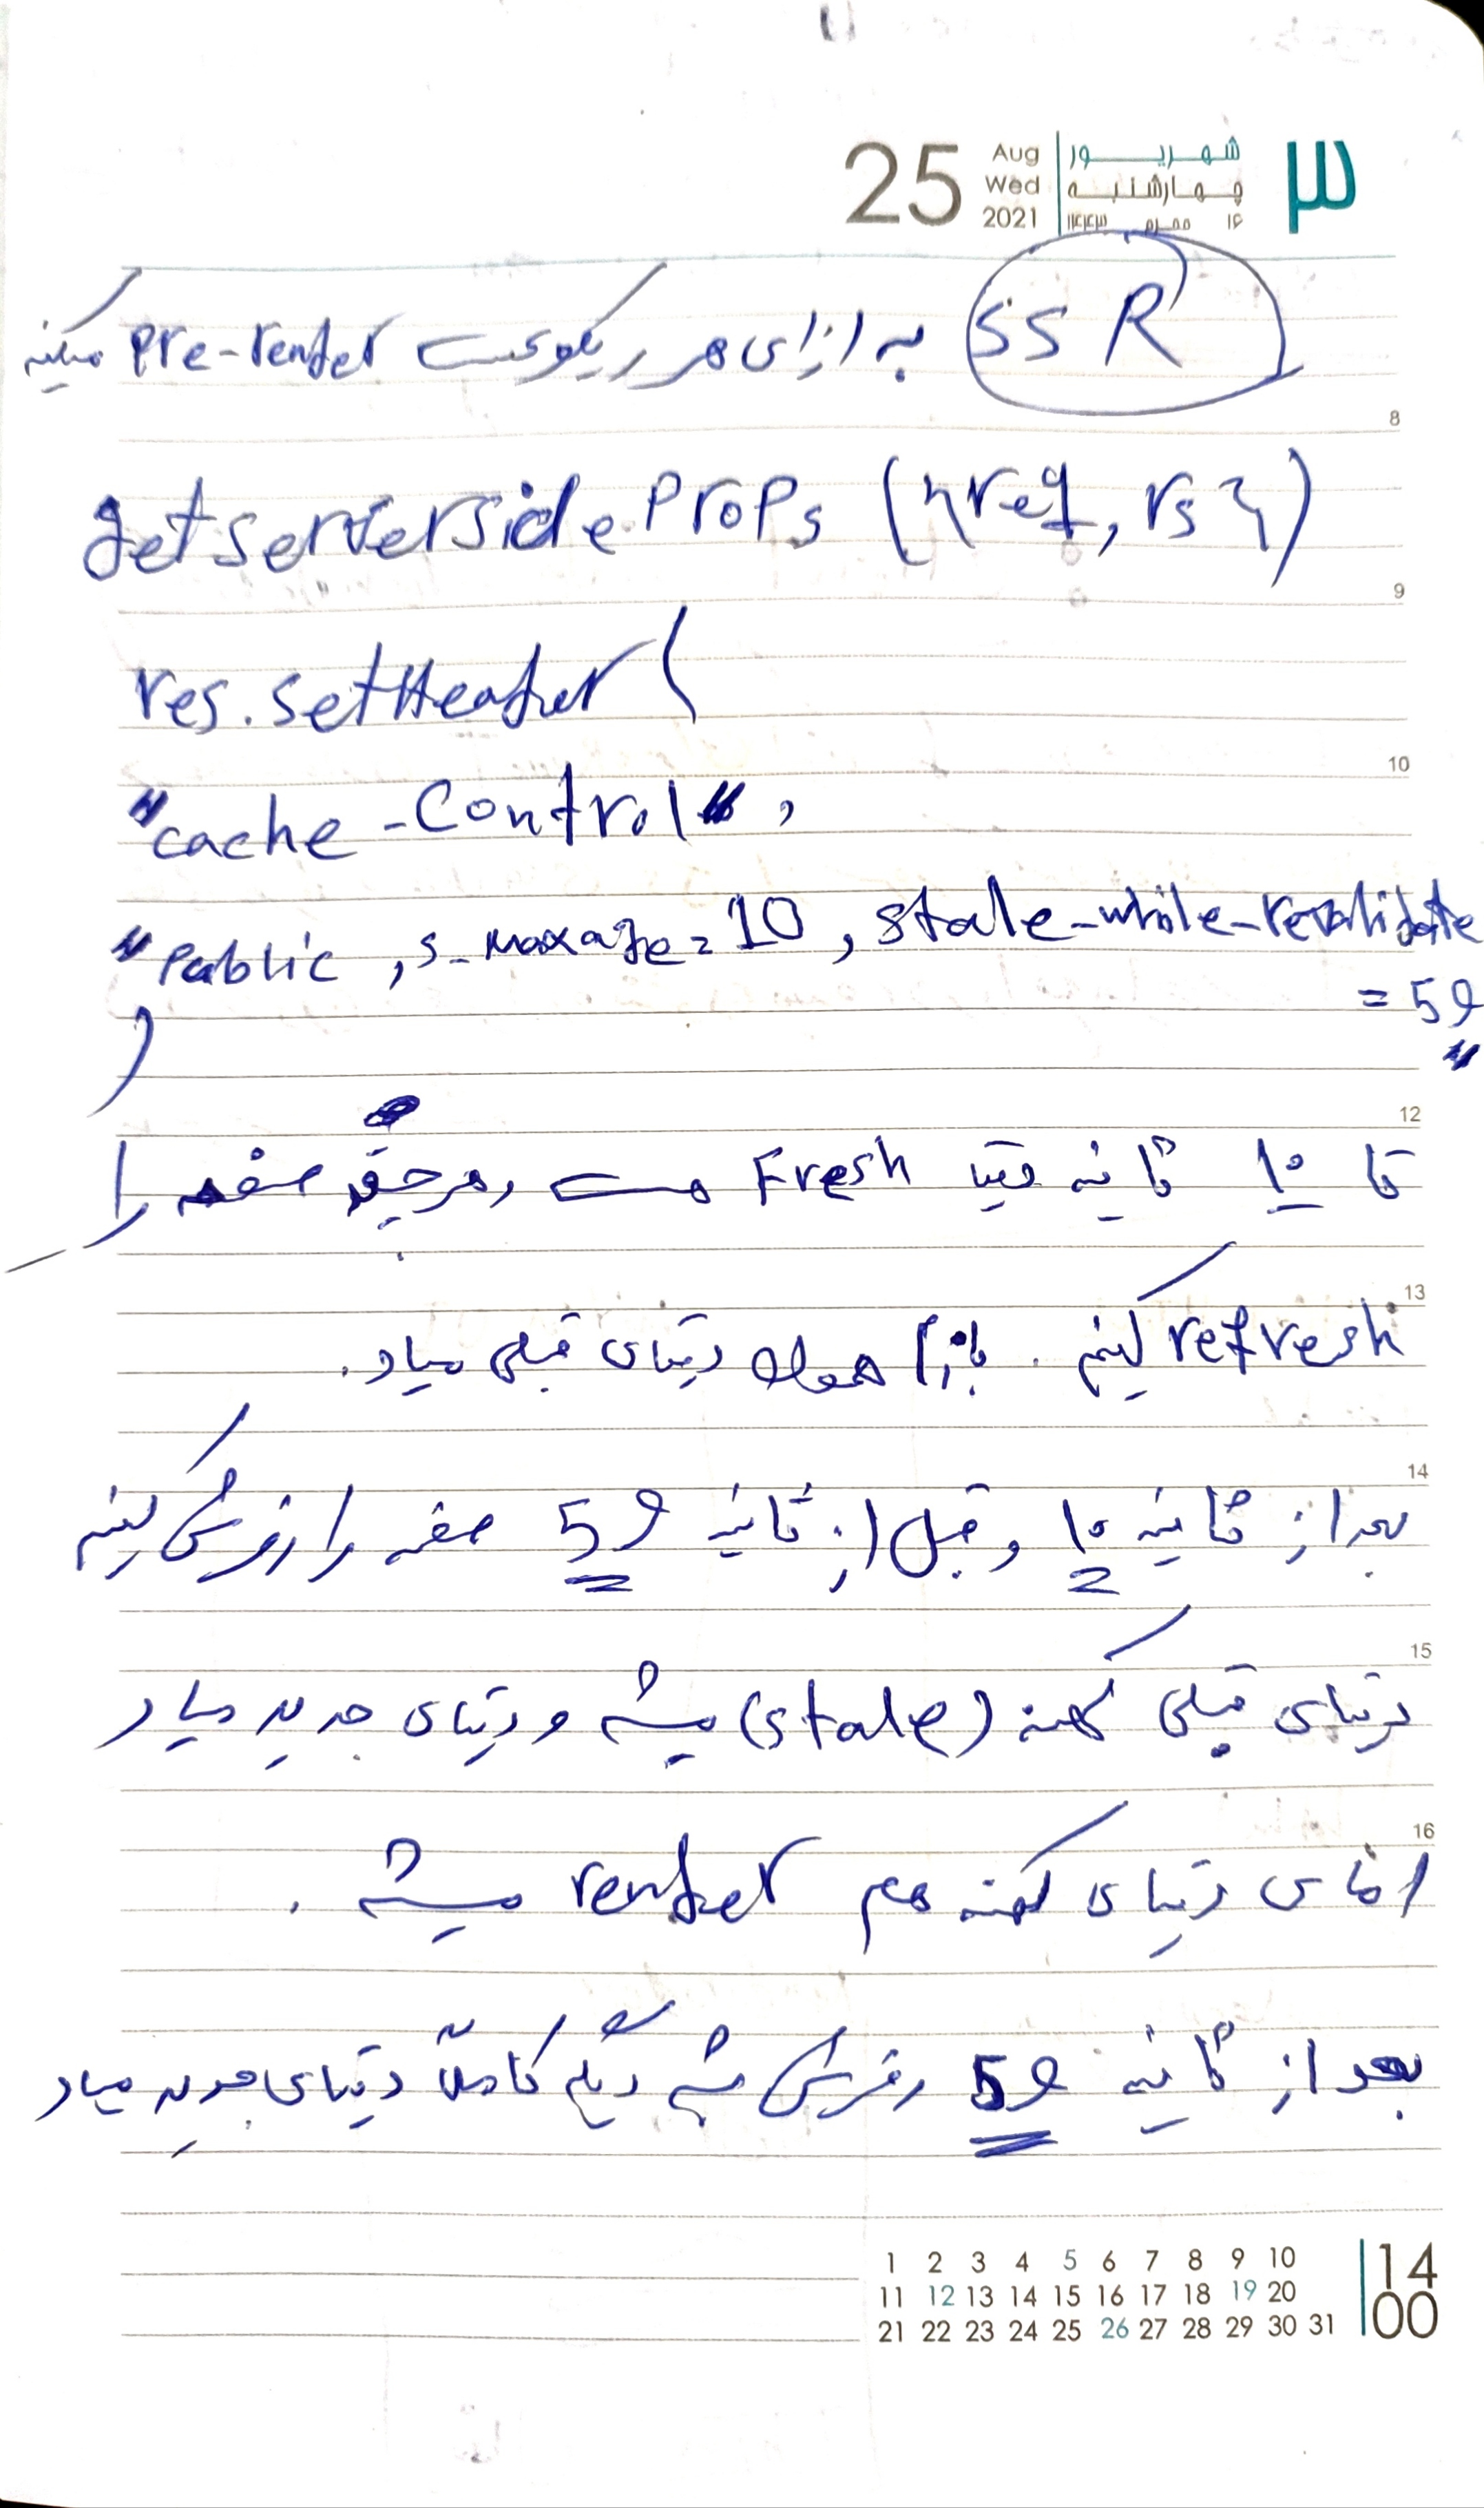 25 Aug Wed 2021 شهریور چهارشنبه ۱۶ محرم ۱۴۴۳ ۳
SSR به ازای هر ریکوئست Pre-render میکنه
8
getserversideProps ({req, rs})
9
res.setHeader(
10
"cache-Control",
"Public, s-maxage=10, stale-while-revalidate
=59
"
)
12
تا ۱۰ ثانیه دیتا Fresh هست و هرچقدر صفحه را
13
refresh کنیم. بازم همون دیتای قبلی میاد.
14
بعد از ثانیه ۱۰ و قبل از ثانیه 59 صفحه را رفرش کنیم
15
دیتای قبلی کهنه (stale) میشه و دیتای جدید میاد
16
اما دیتای کهنه هم render میشه.
بعد از ثانیه 59 رفرش شه دیگه کاملاً دیتای جدید میاد
1 2 3 4 5 6 7 8 9 10
11 12 13 14 15 16 17 18 19 20
21 22 23 24 25 26 27 28 29 30 31
1400